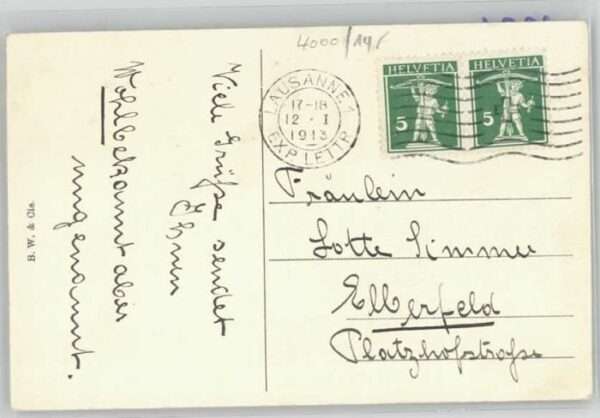 4000/14/
HELVETIA
HELVETIA
5
5
LAUSANNE 1
17-18
12 · I
1913
EXP. LETTR.
Viele Grüße sendet
Ihnen
Wohlbekannt aber
ungenannt.
Fräulein
Lotte Simmer
Elberfeld
Platzhofstraße
B. W. & Cie.